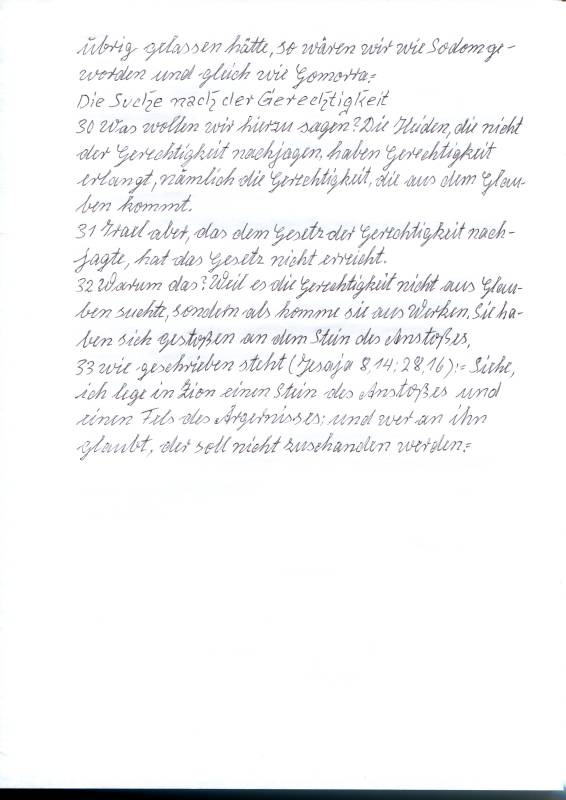 übrig gelassen hätte, so wären wir wie Sodom ge-
worden und gleich wie Gomorra.=
Die Suche nach der Gerechtigkeit
30 Was wollen wir hierzu sagen? Die Heiden, die nicht
der Gerechtigkeit nachjagen, haben Gerechtigkeit
erlangt, nämlich die Gerechtigkeit, die aus dem Glau-
ben kommt.
31 Israel aber, das dem Gesetz der Gerechtigkeit nach-
jagte, hat das Gesetz nicht erreicht.
32 Warum das? Weil es die Gerechtigkeit nicht aus Glau-
ben suchte, sondern als komme sie aus Werken. Sie ha-
ben sich gestoßen an dem Stein des Anstoßes,
33 wie geschrieben steht (Jesaja 8,14; 28,16):= Siehe,
ich lege in Zion einen Stein des Anstoßes und
einen Fels des Ärgernisses; und wer an ihn
glaubt, der soll nicht zuschanden werden.=